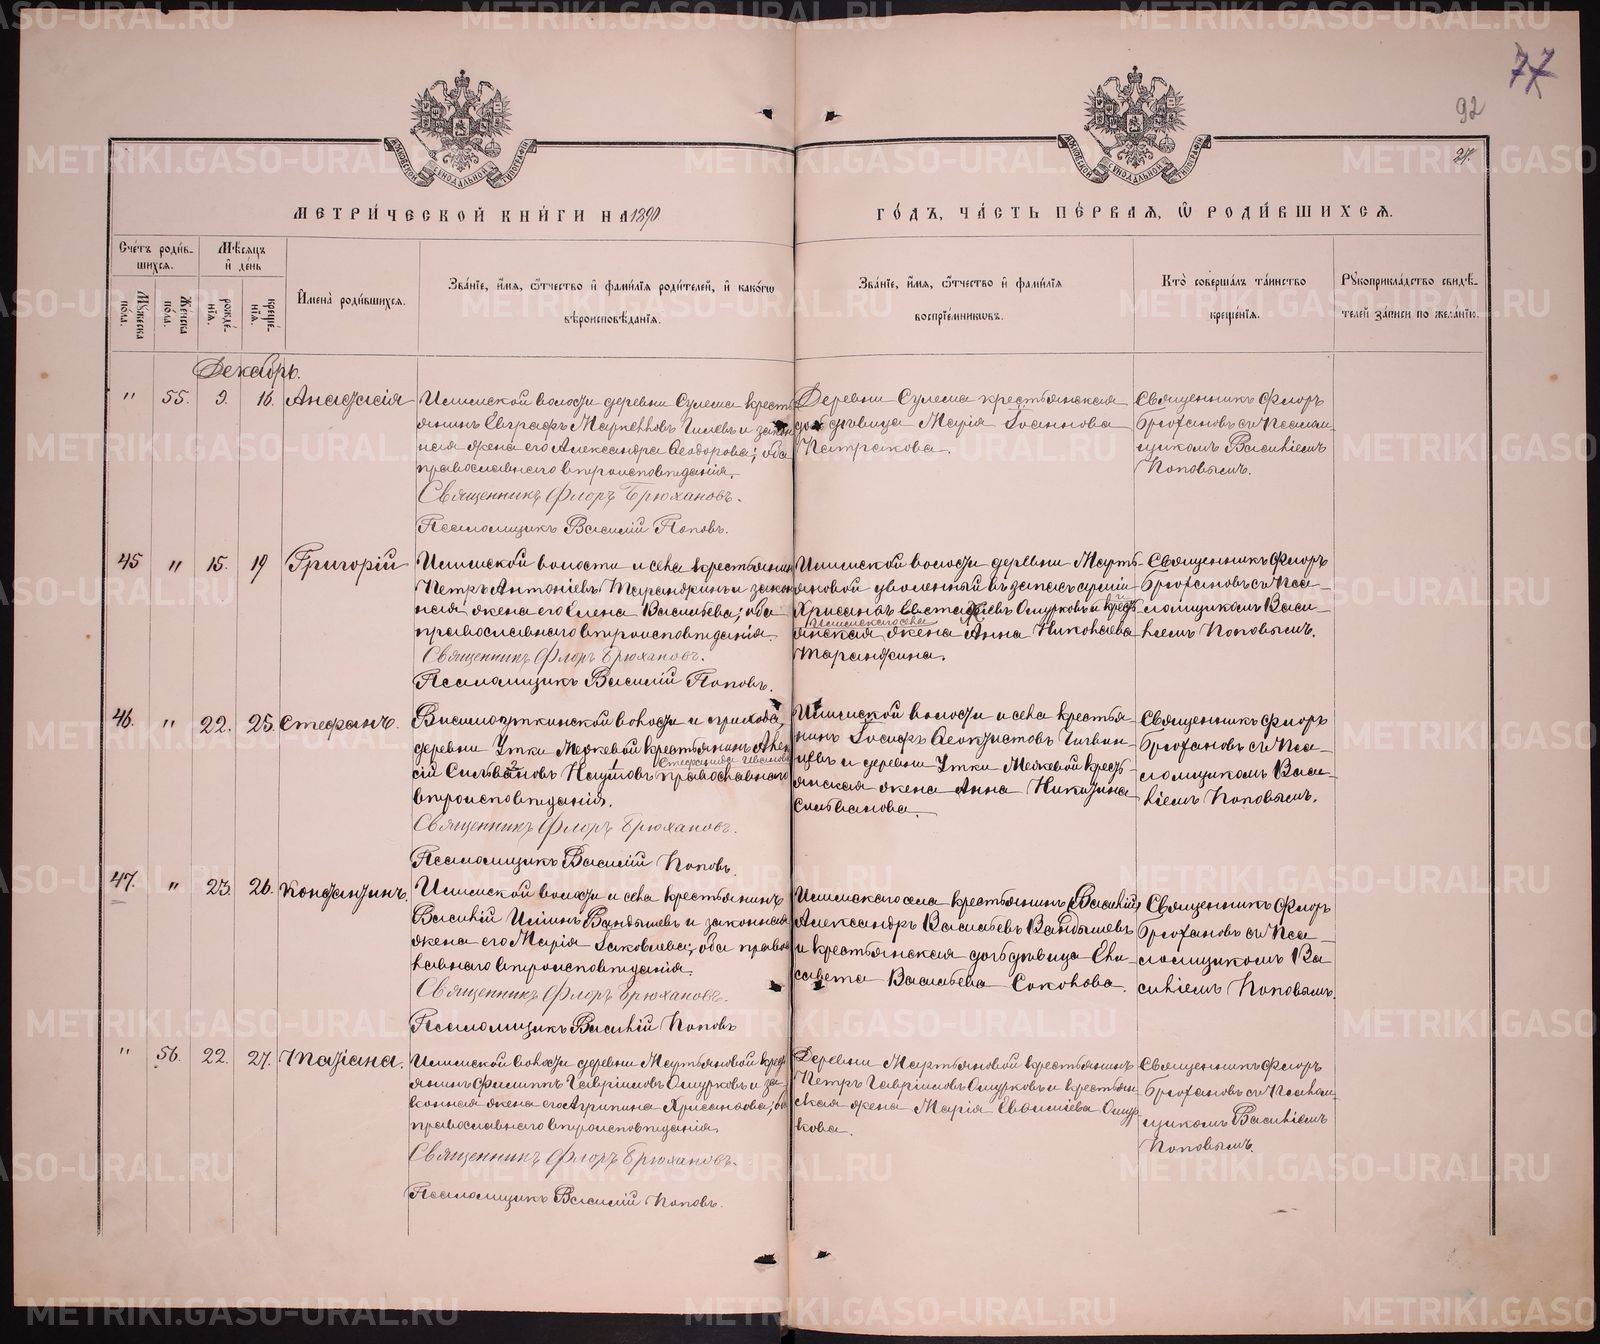 77
92
24.
МЕТРИ́ЧЕСКОЙ КНИ́ГИ НА 1890
ГО́ДЪ, ЧА́СТЬ ПЕ́РВАЯ, Ѿ РОДИ́ВШИХСЯ.
Сче́тъ роди́в-
шихся.
Му́жеска по́ла.
Же́нска по́ла.
Мѣ́сяцъ
и҆ де́нь
рожде́-
нїя.
креще́-
нїя.
И҆мена̀ роди́вшихся.
Зва́нїе, и҆́мя, ѻ҆́тчество и҆ фами́лїя роди́телей, и҆ како́гѡ
вѣроисповѣ́данїя.
Зва́нїе, и҆́мя, ѻ҆́тчество и҆ фами́лїя
воспрїе́мникѡвъ.
Кто̀ соверша́лъ та́инство
креще́нїя.
Рꙋкоприкла́дство свидѣ́-
телей за́писи по жела́нїю.
Декабрь.
" 55. 9. 16. Анастасія
Илимской волости деревни Сулема кресть
янинъ Евграфъ Маркелловъ Гилевъ и закон
ная жена его Александра Ѳеодорова; оба
православнаго вѣроисповѣданія.
Священникъ Флоръ Брюхановъ.
Псаломщикъ Василій Поповъ.
Деревни Сулема крестьянская
дѣвица Марія Іоаннова
Патракова.
Священникъ Флоръ
Брюхановъ съ Псалом
щикомъ Василіемъ
Поповымъ.
45 " 15. 19 Григорій
Илимской волости и села крестьянинъ
Петръ Антоніевъ Таранжинъ и закон
ная жена его Елена Васильева; оба
православнаго вѣроисповѣданія.
Священникъ Флоръ Брюхановъ.
Псаломщикъ Василій Поповъ.
Илимской волости деревни Марть
яновой уволенный въ запасъ арміи
Хрисанѳъ Ошурковъ и крест
Илимскаго села
янская жена Анна Николаева
Таранжина.
Священникъ Флоръ
Брюхановъ съ Пса-
ломщикомъ Васи-
ліемъ Поповымъ.
46. " 22. 25. Стефанъ.
Висимоуткинской волости и прихода,
деревни Утки Межевой крестьянинъ Алек
Стефанида Иванова
сій Сильвановъ православнаго
вѣроисповѣданія.
Священникъ Флоръ Брюхановъ.
Псаломщикъ Василій Поповъ.
Илимской волости и села крестья-
нинъ Іосифъ Ѳеоктистовъ
и деревни Утки Межевой кресть
янская жена Анна Никитина
Сильванова.
Священникъ Флоръ
Брюхановъ съ Пса-
ломщикомъ Васи-
ліемъ Поповымъ.
47. " 23. 26. Константинъ.
Илимской волости и села крестьянинъ
Василій Ильинъ Вандышевъ и законная
жена его Марія Іаковлева; оба правос
лавнаго вѣроисповѣданія.
Священникъ Флоръ Брюхановъ.
Псаломщикъ Василій Поповъ
Илимскаго села крестьянинъ (Василій)
Александръ Васильевъ Вандышевъ
и крестьянская дочь дѣвица Ели-
савета Васильева Соколова.
Священникъ Флоръ
Брюхановъ съ Пса-
ломщикомъ Ва-
силіемъ Поповымъ.
" 56. 22. 27. Татіана.
Илимской волости деревни Мартьяновой крест
янинъ Филиппъ Гавріиловъ Ошурковъ и за-
конная жена его Агрипина Хрисанѳова; оба
православнаго вѣроисповѣданія.
Священникъ Флоръ Брюхановъ.
Псаломщикъ Василій Поповъ.
Деревни Мартьяновой крестьянинъ
Петръ Гавріиловъ Ошурковъ и крестьян
ская жена Марія Евѳиміева Ошур
кова.
Священникъ Флоръ
Брюхановъ съ Псалом
щикомъ Василіемъ
Поповымъ.